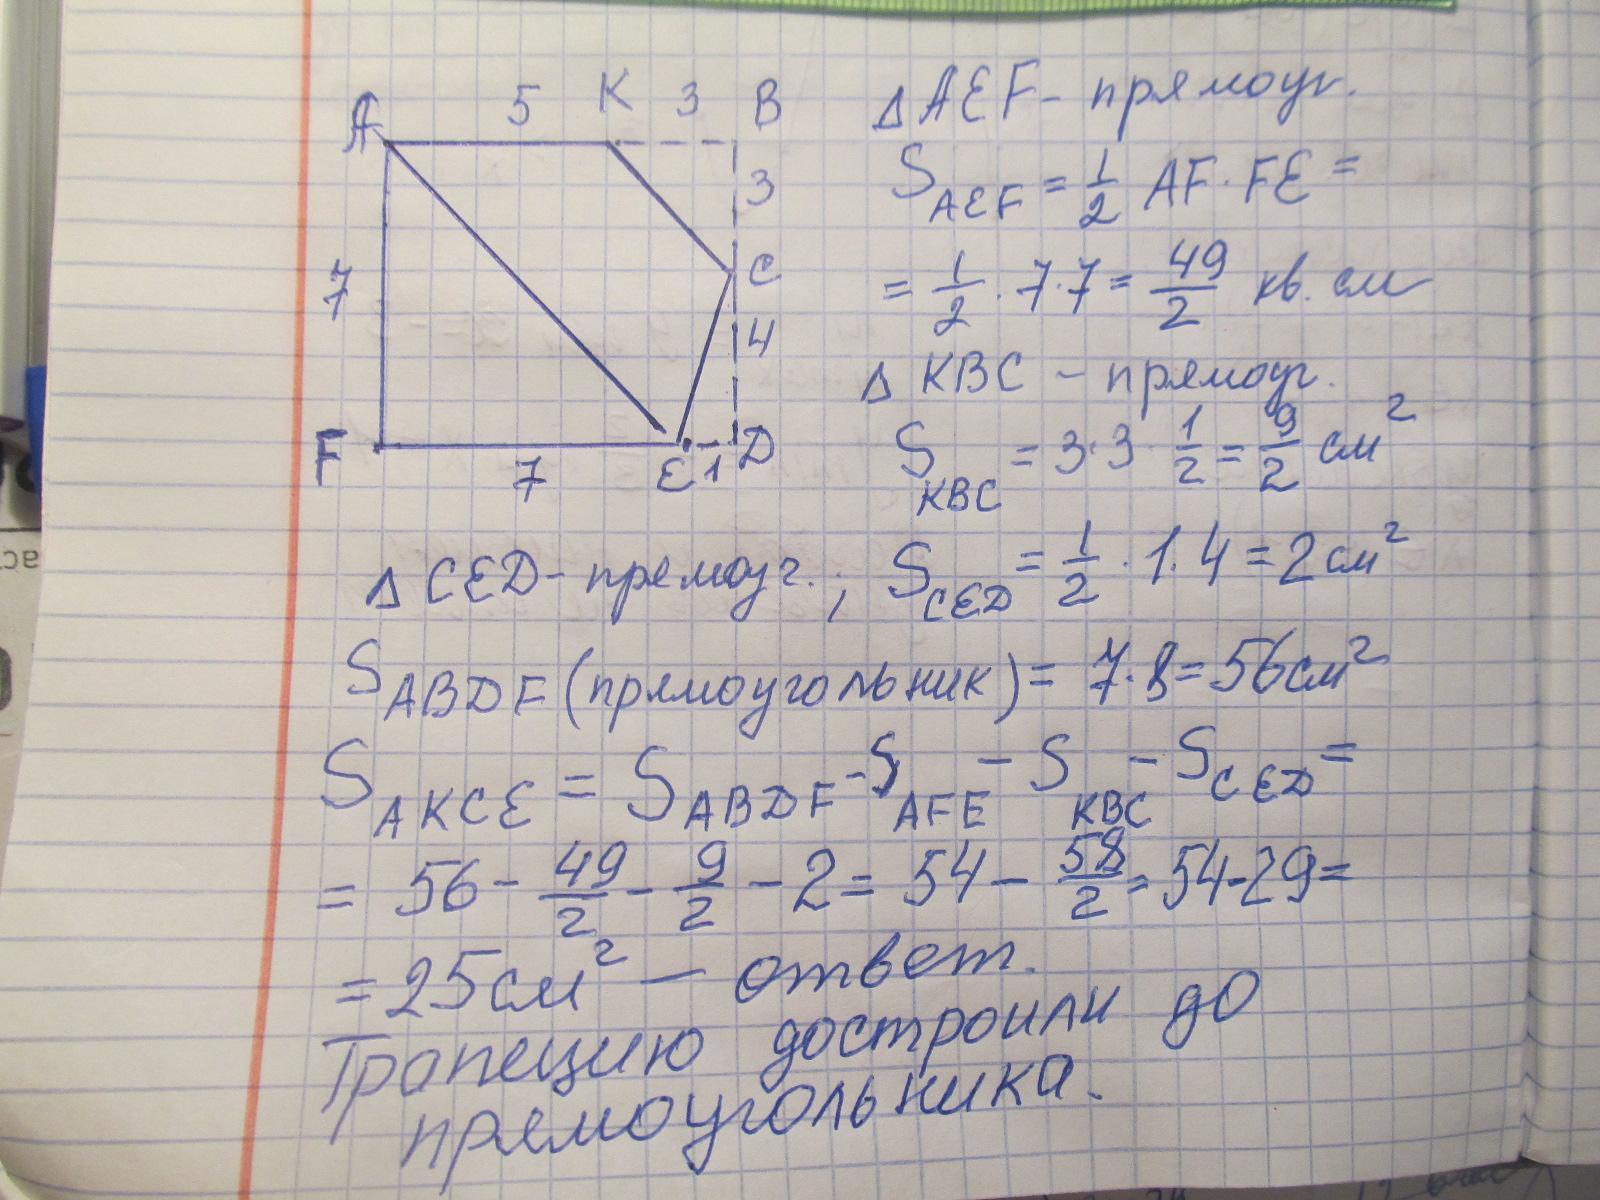 5 K 3 B
A
3
C
7
4
F
7
E 1 D
Δ AEF - прямоуг.
S AEF = 1/2 AF · FE =
= 1/2 · 7 · 7 = 49/2 кв. см
Δ KBC - прямоуг.
S KBC = 3 · 3 · 1/2 = 9/2 см²
Δ CED - прямоуг. ; S CED = 1/2 · 1 · 4 = 2 см²
S ABDF (прямоугольник) = 7 · 8 = 56 см²
S AKCE = S ABDF - S AFE - S KBC - S CED =
= 56 - 49/2 - 9/2 - 2 = 54 - 58/2 = 54 - 29 =
= 25 см² - ответ.
Трапецию достроили до
прямоугольника.